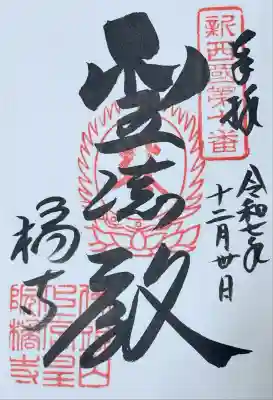 奉拝
新西國第十番
令和七年
十二月廿日
橘寺
佛頭山
上宮皇
院橘寺